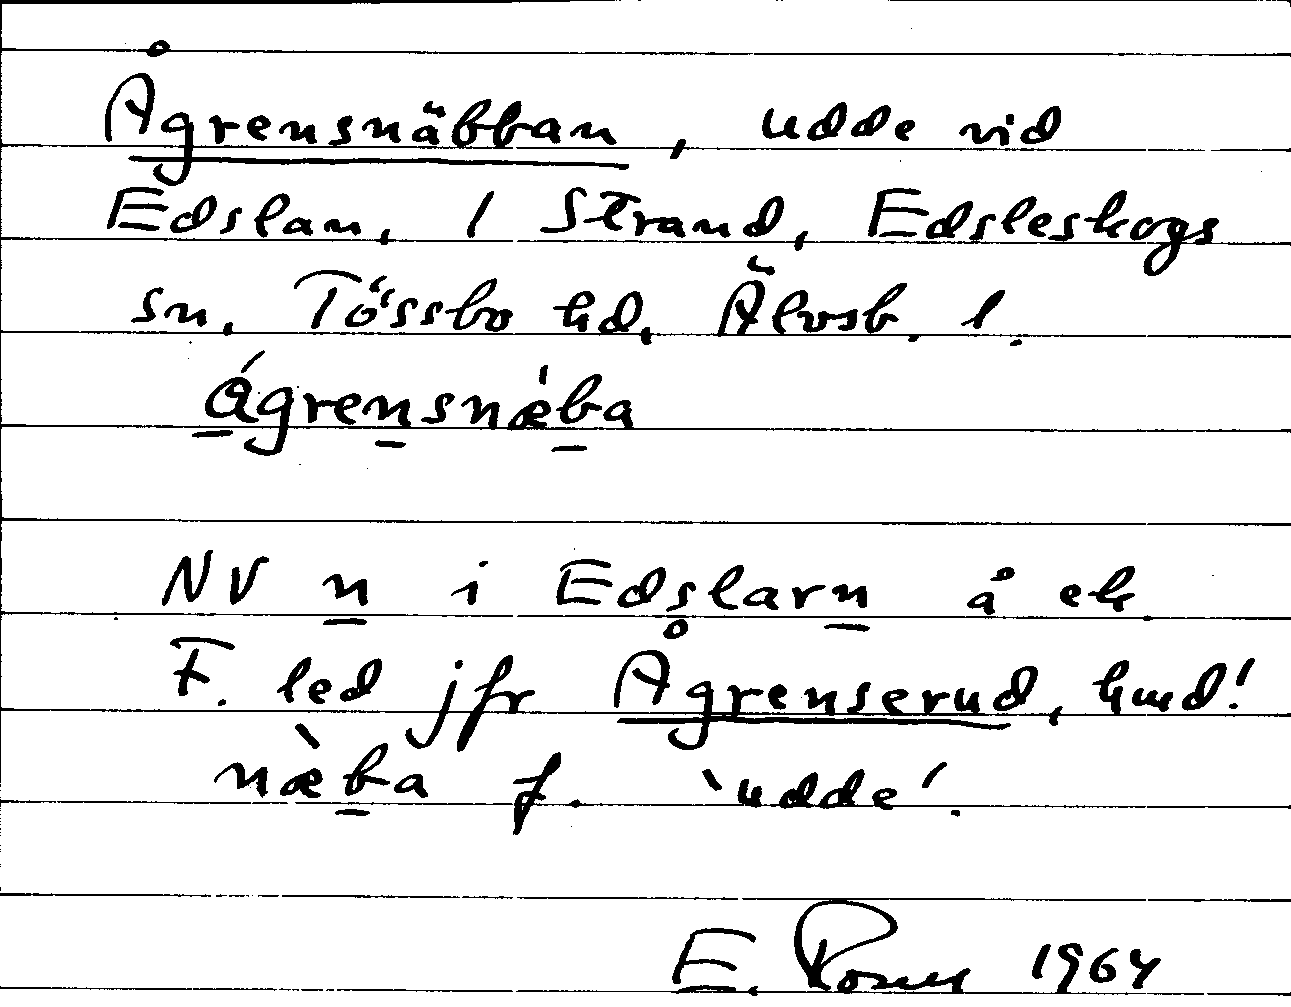 Ågrensnäbban, udde vid
Edslan, 1 Strand, Edsleskogs
sn, Tössbo hd, Älvsb. l.
ágrensnæ̍ba
NV n i Edslarn å ek
F. led jfr Ågrenserud, hmd!
næ̀ba f. `udde'.
E. 1964